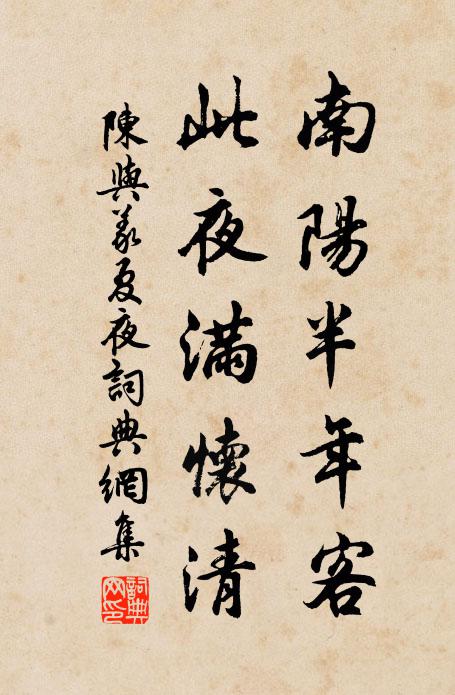 南陽半年客
此夜滿懷清
陳與義夏夜詞典網集
詞典網印